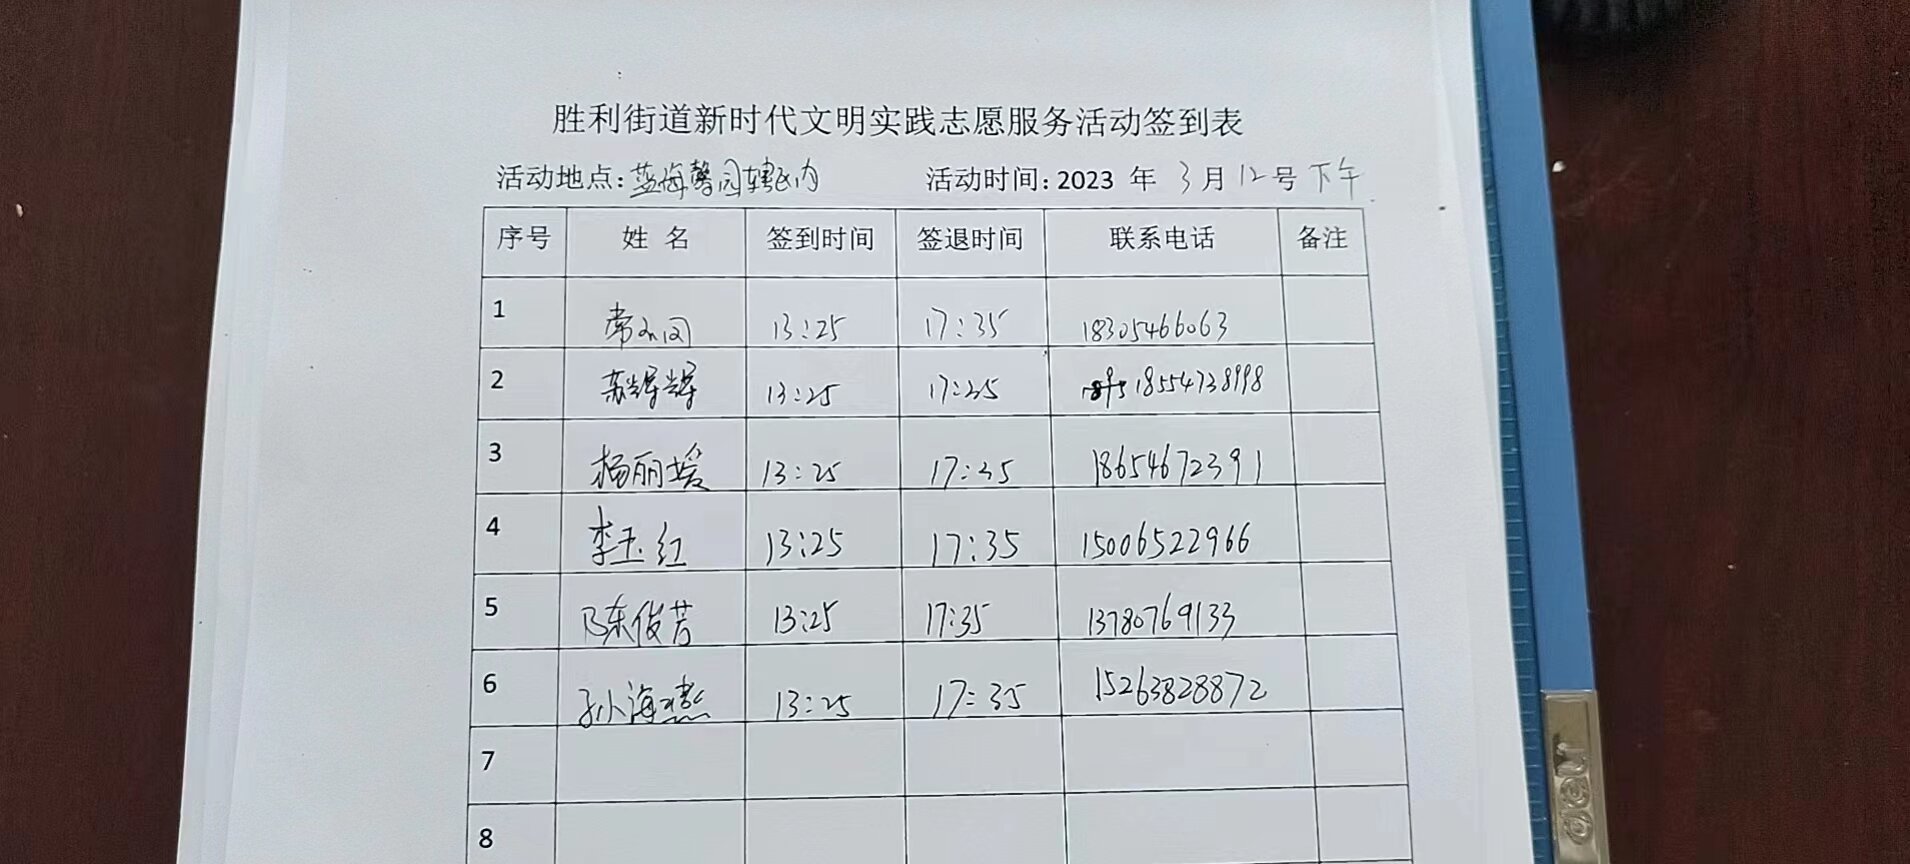 胜利街道新时代文明实践志愿服务活动签到表
活动地点:蓝海馨园辖区内 活动时间:2023 年 3月12号下午
序号 姓 名 签到时间 签退时间 联系电话 备注
1 常 13:25 17:35 18305466063
2 苏辉辉 13:25 17:35 18554738998
3 杨丽媛 13:25 17:35 18654672391
4 李玉红 13:25 17:35 15006522966
5 陈俊芳 13:25 17:35 13780769133
6 孙海燕 13:25 17:35 15263828872
7
8
deli